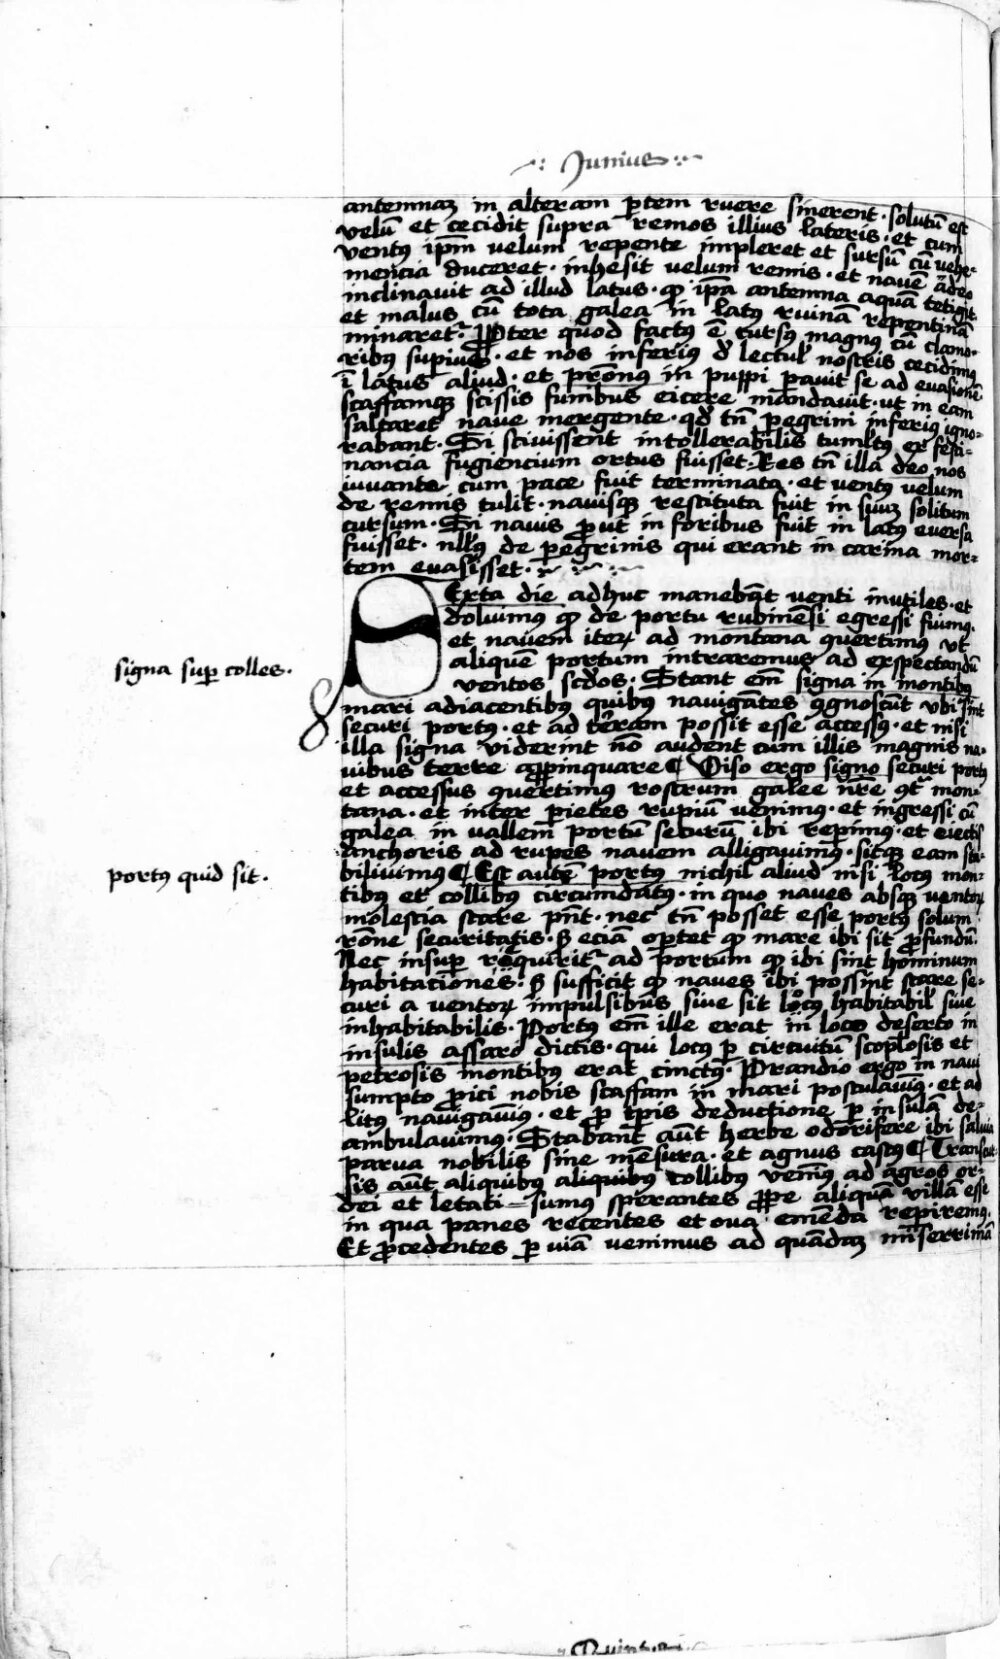 Junius
antemnaꝫ in alteram ꝑtem ruere sinerent · solutū est
velū et cecidit supra remos illius lateris · et cum
ventꝰ ip̄m velum repente impleret et sursū cū vehe-
mencia duceret · inhesit velum remis · et navē adeo
inclinavit ad illud latus · ꝙ ip̄a antemna aquā tetigit
et malus cū tota galea in latꝰ ruinā repentinā
minaret᷑ · Propter quod factꝰ ē cursꝰ magnꝰ cū clamo-
ribꝰ supius · et nos inferiꝰ de lectul' nostris cecidimꝰ
ī latus aliud · et pr̄onus in puppi pavit se ad evasionē
scaffamqꝫ scissis funibus eicere mandavit · ut in eam
saltaret nave mergente · qd' tn̄ ꝑegrini inferiꝰ igno-
rabant · Si scivissent intollerabilis tumltꝰ ex festi-
nancia fugiencium ortus fuisset · Res tn̄ illa deo nos
iuvante cum pace fuit terminata · et ventꝰ velum
de remis tulit · navisqꝫ restituta fuit in suuꝫ solitum
cursum · Si navis ꝓut in foribus fuit in latꝰ eversa
fuisset · nllꝰ de ꝑegrinis qui erant in carina mor-
tem evasisset ·
Sexta die adhuc maneb̄at venti inutiles · et
doluimus ꝙ de portu rubinēsi egressi fuimꝰ ·
et navem iteꝝ ad montana ꝯvertimus ut
aliquē portum intraremus ad exspectandū
ventos scd̄os · Stant em̄ signa in montibꝰ
signa suꝑ colles ·
mari adiacentibꝰ quibꝰ navigātes ꝯgnoscūt ubi sint
securi portꝰ · et ad terram possit esse accessꝰ · et nisi
illa signa viderint nō audent cum illis magnis na-
vibus terre aꝓpinquare ¶ Viso ergo signo securi portꝰ
et accessus ꝯvertimus rostrum galee nr̄e ꝯt᷑ mon-
tana · et inter ꝑietes rupiū venimꝰ · et ingressi cū
galea in vallem portū securū ibi reꝑimꝰ · et eiectis
anchoris ad rupes navem alligavimꝰ · sicqꝫ eam sta-
bilivimus ¶ Est autē portꝰ nichil aliud nisi locꝰ mon-
portꝰ quid sit ·
tibꝰ et collibꝰ circumdatꝰ · in quo naves absqꝫ ventoꝝ
molestia stare pn̄t · nec tn̄ posset esse portꝰ solum
rōne securitatis · sꝫ eciā oportet ꝙ mare ibi sit ꝓfundū ·
Nec insuꝑ requirit᷑ ad portum ꝙ ibi sint hominum
habitaciones · sꝫ sufficit ꝙ naves ibi possint stare se-
curi a ventoꝝ impulsibus sive sit locꝰ habitabil' sive
inhabitabilis · Portꝰ em̄ ille erat in loco deserto in
insulis assaro dictis · qui locꝰ ꝑ circuitū scoplosis et
petrosis montibꝰ erat cinctꝰ · Prandio ergo in navi
sumpto ꝓici nobis scaffam in mari postulavimꝰ · et ad
litꝰ navigavimꝰ · et ꝓ tꝑis deductione ꝑ insulā de-
ambulavimus · Stabant aūt herbe odorifere ibi salvia
parva nobilis sine mēsura · et agnus castꝰ ¶ Transcur-
sis aūt aliquibꝰ aliquibꝰ collibꝰ venimꝰ ad agros or-
dei et letati sumus sperantes ꝓpe aliquā villā esse
in qua panes recentes et ova emēda reꝑiremꝰ ·
Et ꝓcedentes ꝑ viā venimus ad quādaꝫ miserrimā